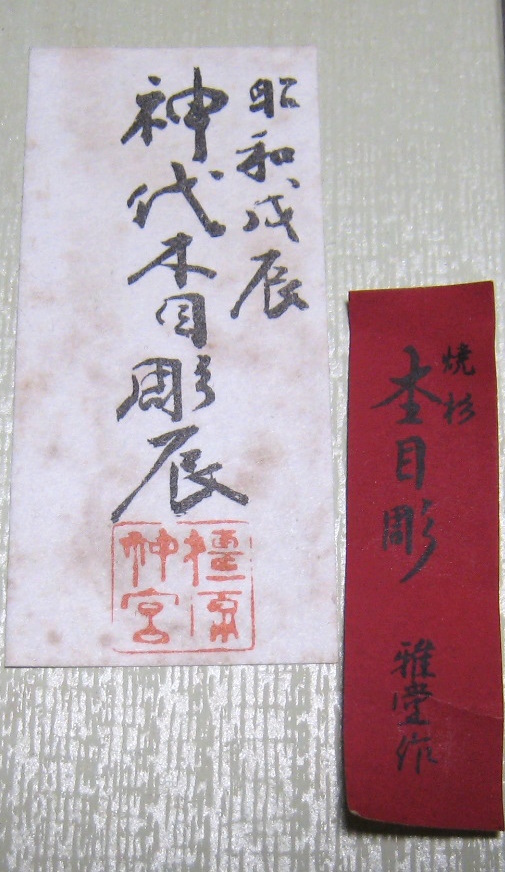 昭和戊辰
神代木目彫辰
橿原
神宮
焼杉
杢目彫
雅堂作